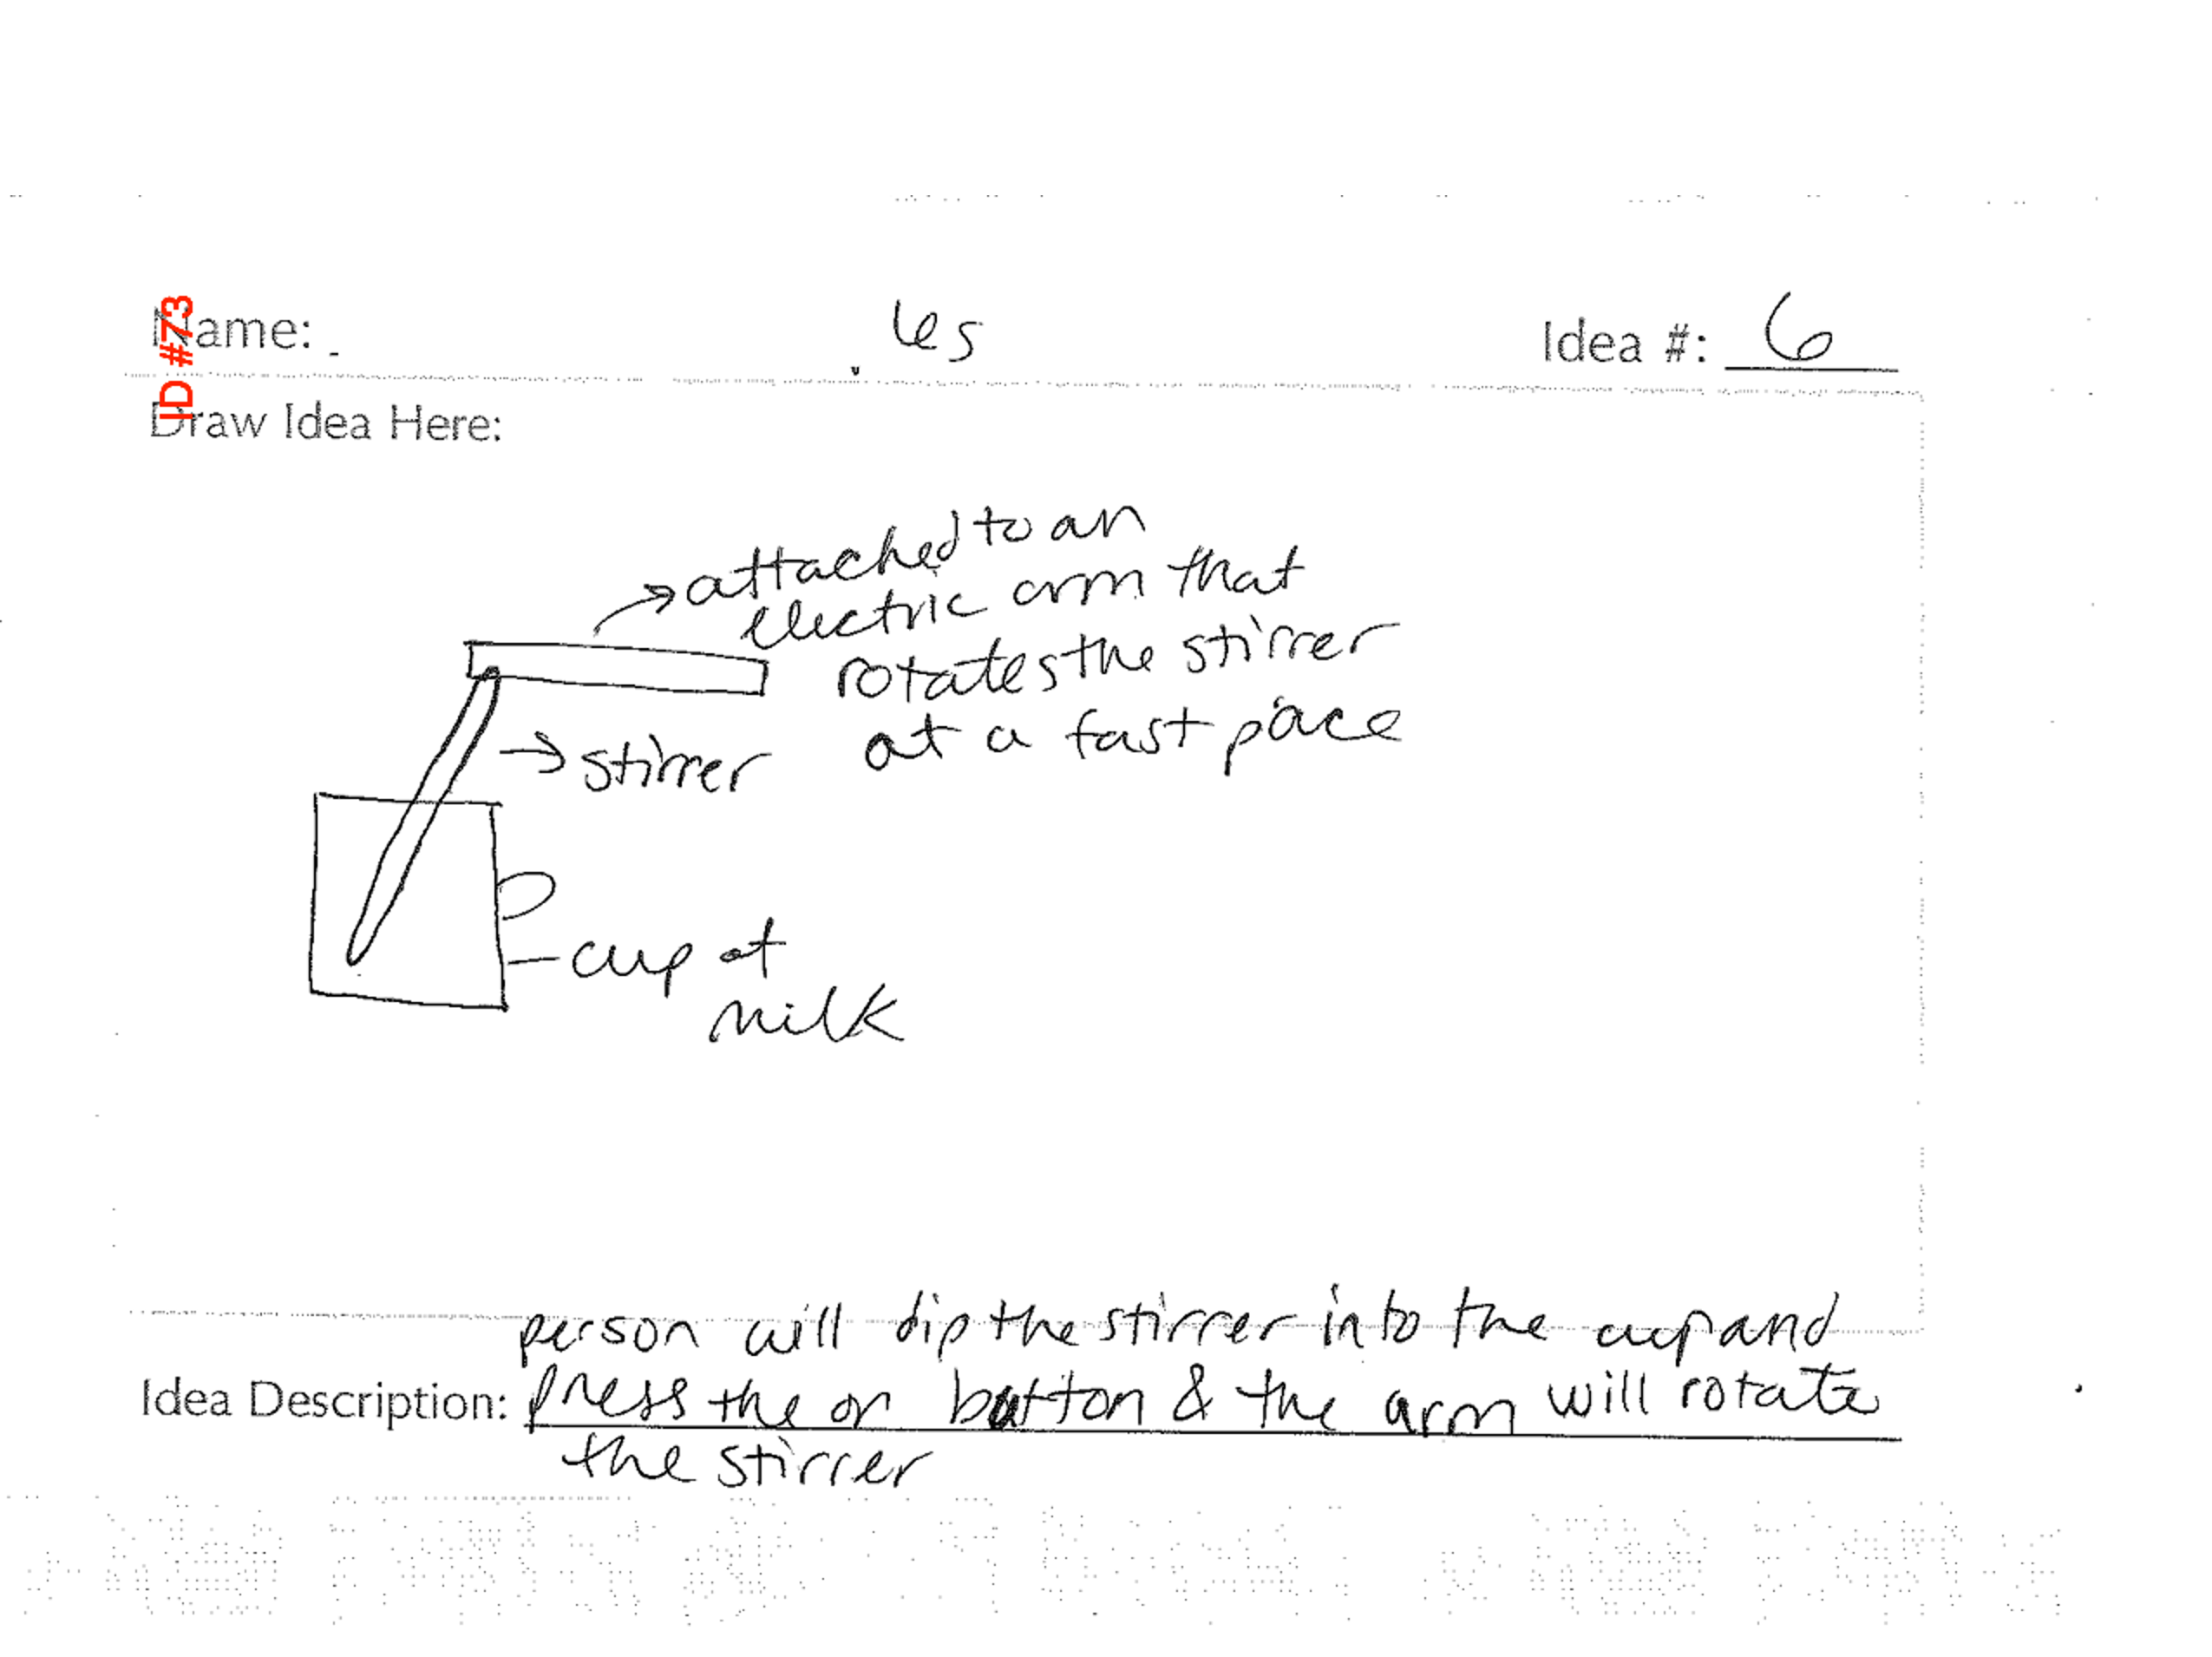 ID #73
Name:
Idea #: 6
Draw Idea Here:
attached to an
electric arm that
rotates the stirrer
at a fast pace
stirrer
cup of
milk
person will dip the stirrer into the cup and
Idea Description: press the on button & the arm will rotate
the stirrer